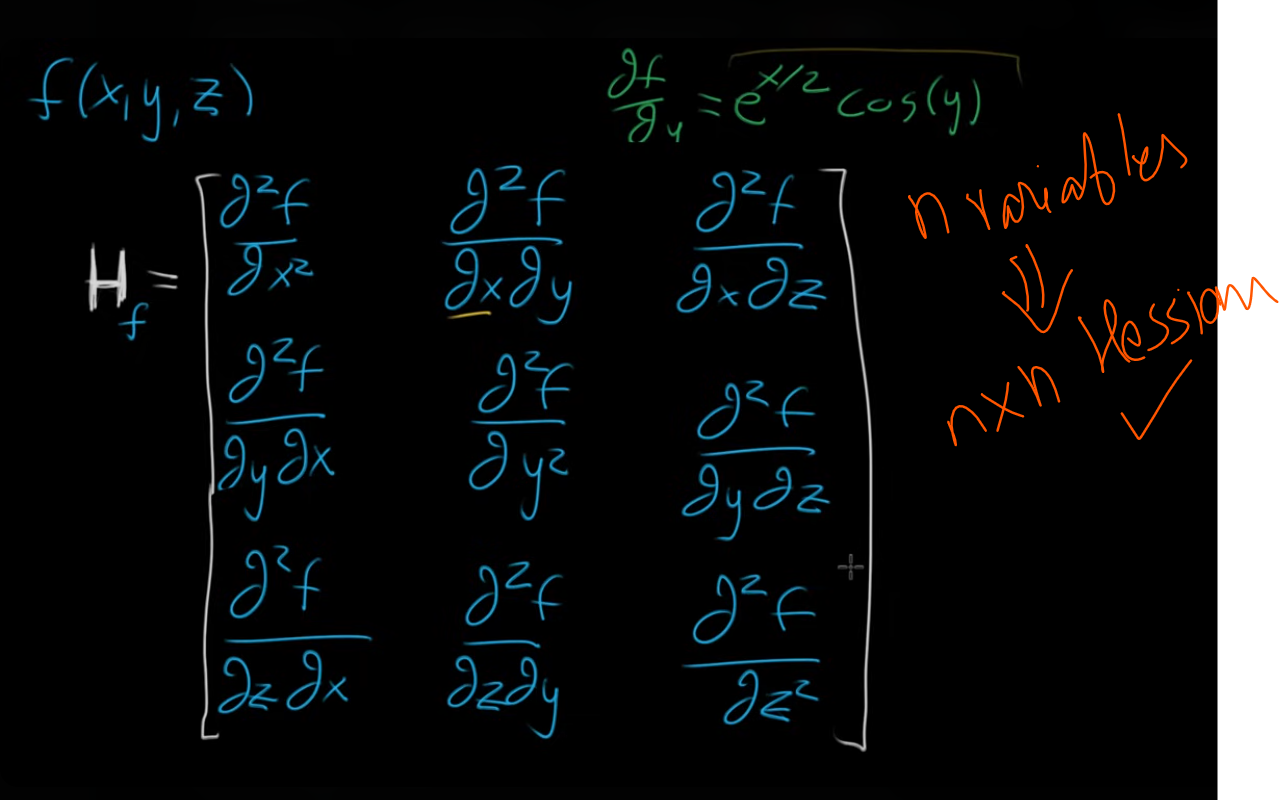 f(x,y,z)
∂f/∂y = e^(x/2) cos(y)
H_f = [ ∂²f/∂x² ∂²f/∂x∂y ∂²f/∂x∂z
∂²f/∂y∂x ∂²f/∂y² ∂²f/∂y∂z
∂²f/∂z∂x ∂²f/∂z∂y ∂²f/∂z² ]
n variables
⇓
n×n Hessian
✓